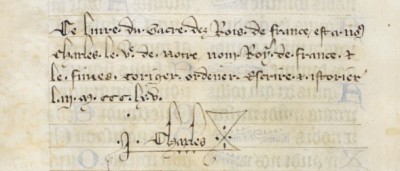 Ce liure du sacre dez Rois de france est a no9
Charles le Ve de notre nom Roy de france et
le fimes coriger ordener Escrire et istorier
l an m ccc lxv
Charles